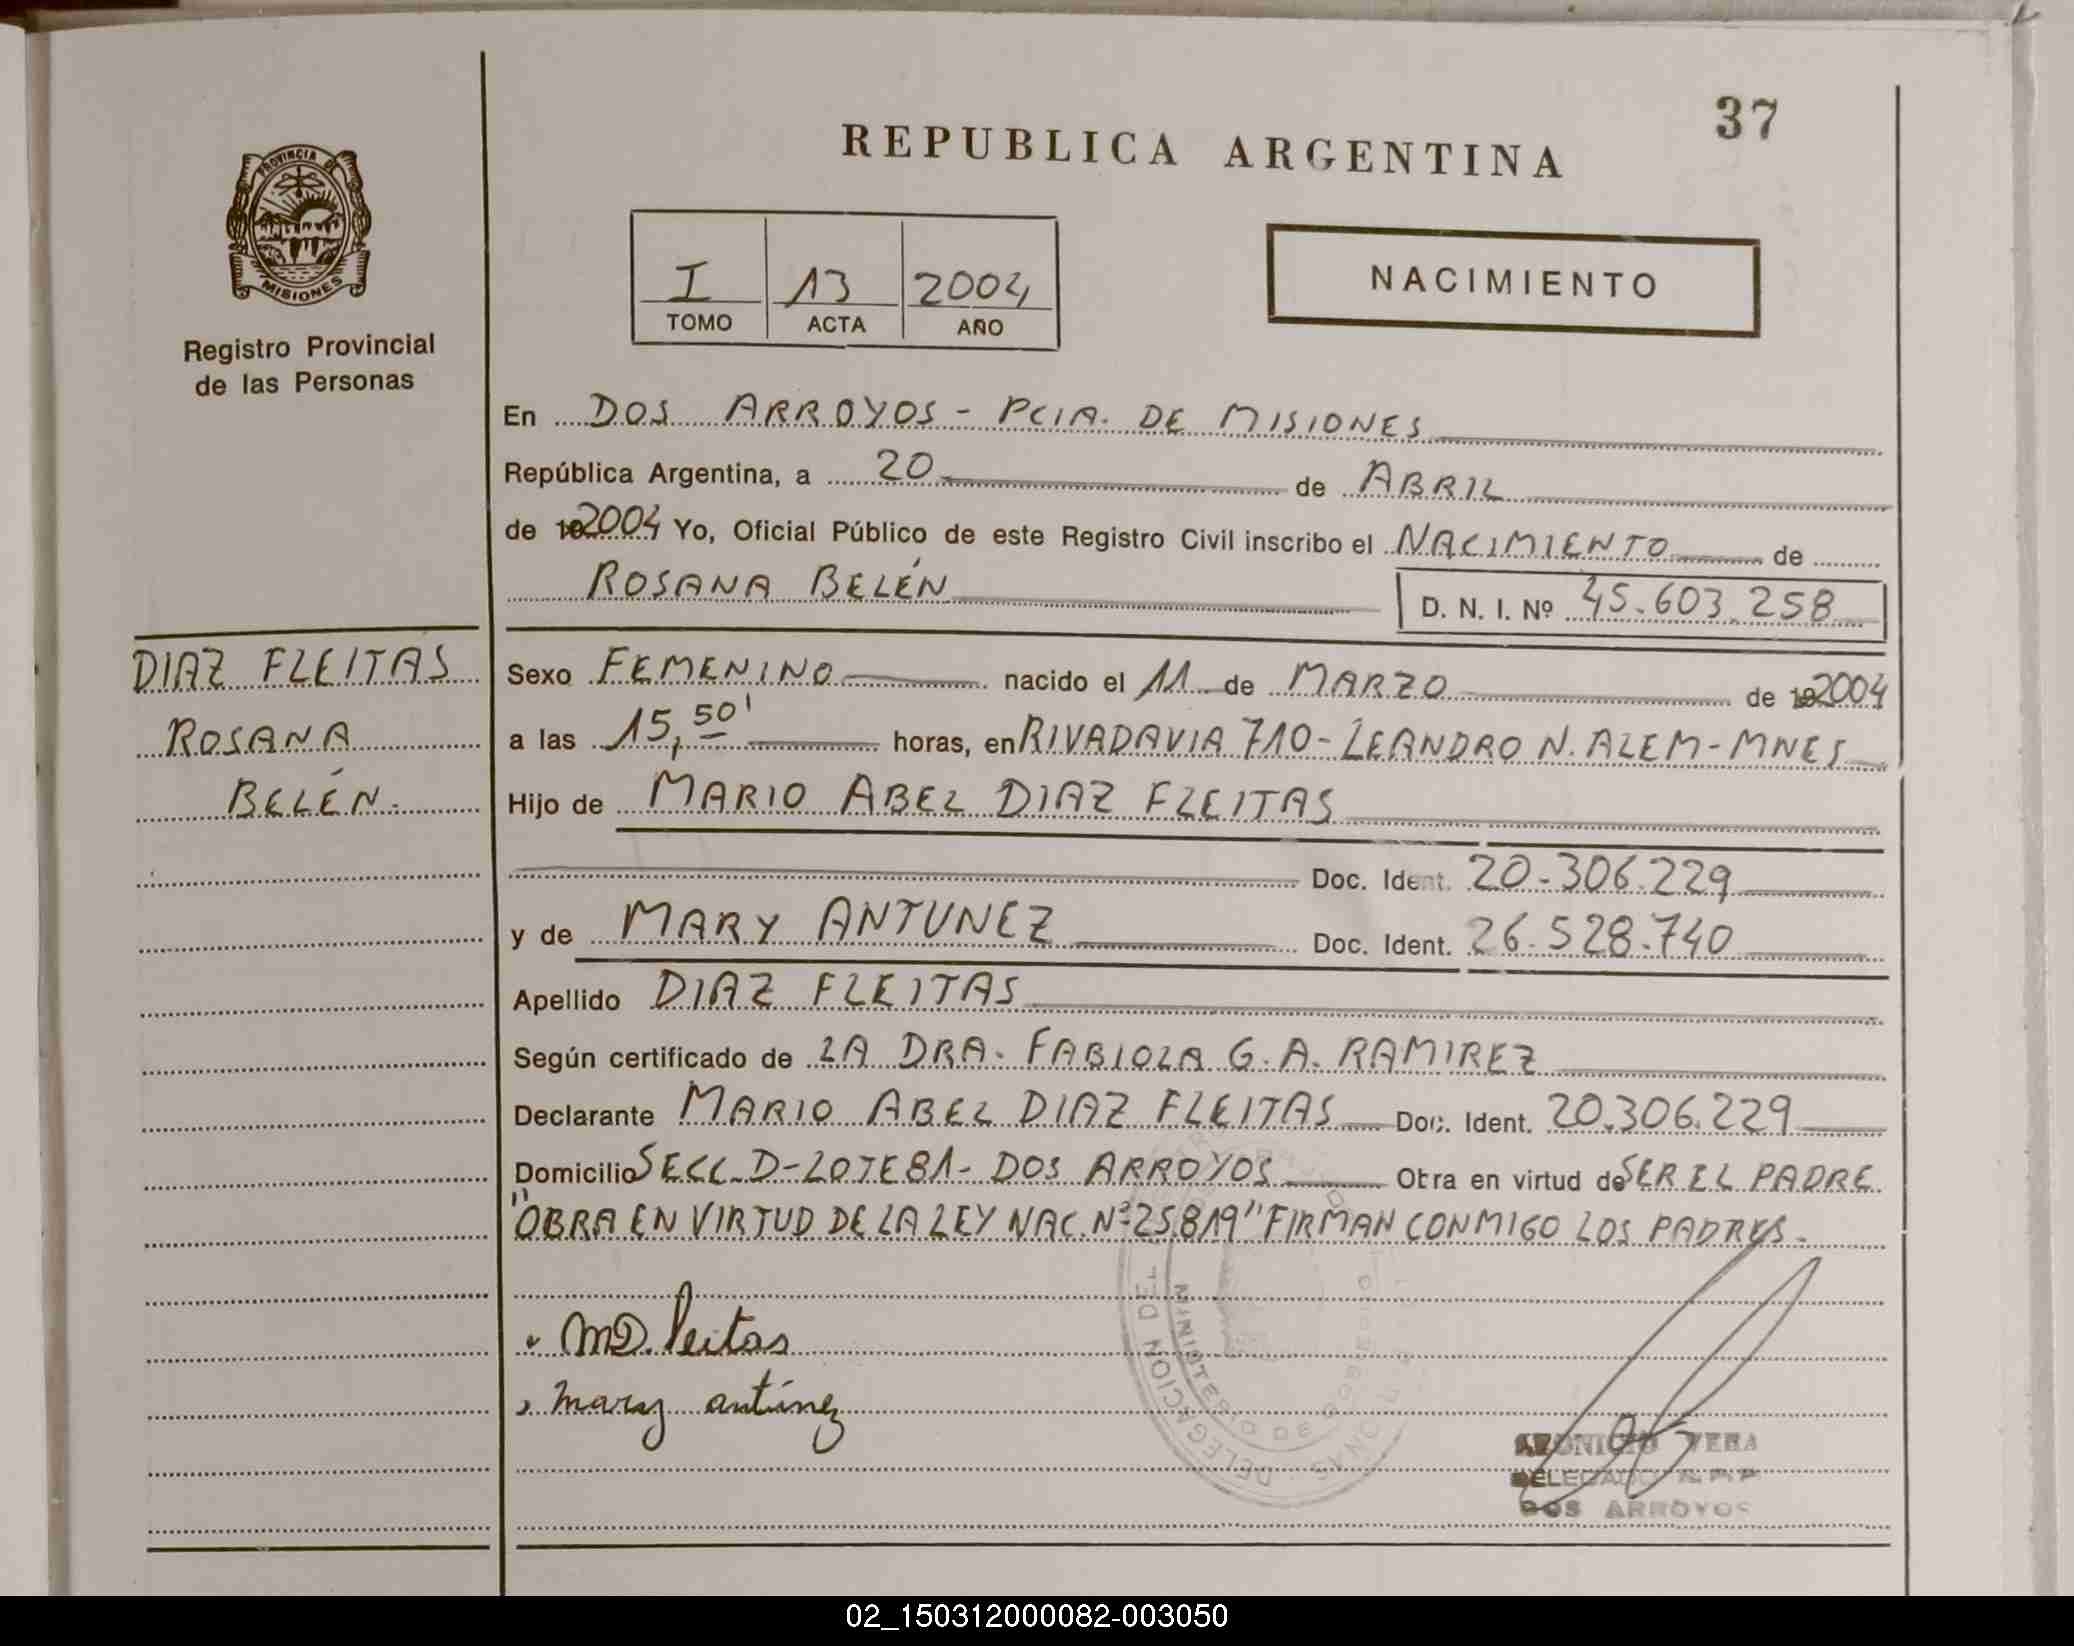 37
REPUBLICA ARGENTINA
PROVINCIA DE
MISIONES
Registro Provincial
de las Personas
I 13 2004
TOMO ACTA AÑO
NACIMIENTO
En DOS ARROYOS - PCIA. DE MISIONES
República Argentina, a 20 de ABRIL
de 19 2004 Yo, Oficial Público de este Registro Civil inscribo el NACIMIENTO de
ROSANA BELÉN D. N. I. Nº 45.603.258
DIAZ FLEITAS
ROSANA
BELÉN.
Sexo FEMENINO nacido el 11 de MARZO de 19 2004
a las 15,50' horas, en RIVADAVIA 710 - LEANDRO N. ALEM - MNES
Hijo de MARIO ABEL DIAZ FLEITAS
Doc. Ident. 20.306.229
y de MARY ANTUNEZ Doc. Ident. 26.528.740
Apellido DIAZ FLEITAS
Según certificado de LA DRA. FABIOLA G. A. RAMIREZ
Declarante MARIO ABEL DIAZ FLEITAS Doc. Ident. 20.306.229
Domicilio SECC. D - LOTE 81 - DOS ARROYOS Obra en virtud de SER EL PADRE
"OBRA EN VIRTUD DE LA LEY NAC. Nº 25.819" FIRMAN CONMIGO LOS PADRES.
MD. leitas
mary antúnez
DELEGACION DEL
MINISTERIO DE GOBIERNO
VERA
DELEGADO R.P.P.
DOS ARROYOS
02_150312000082-003050